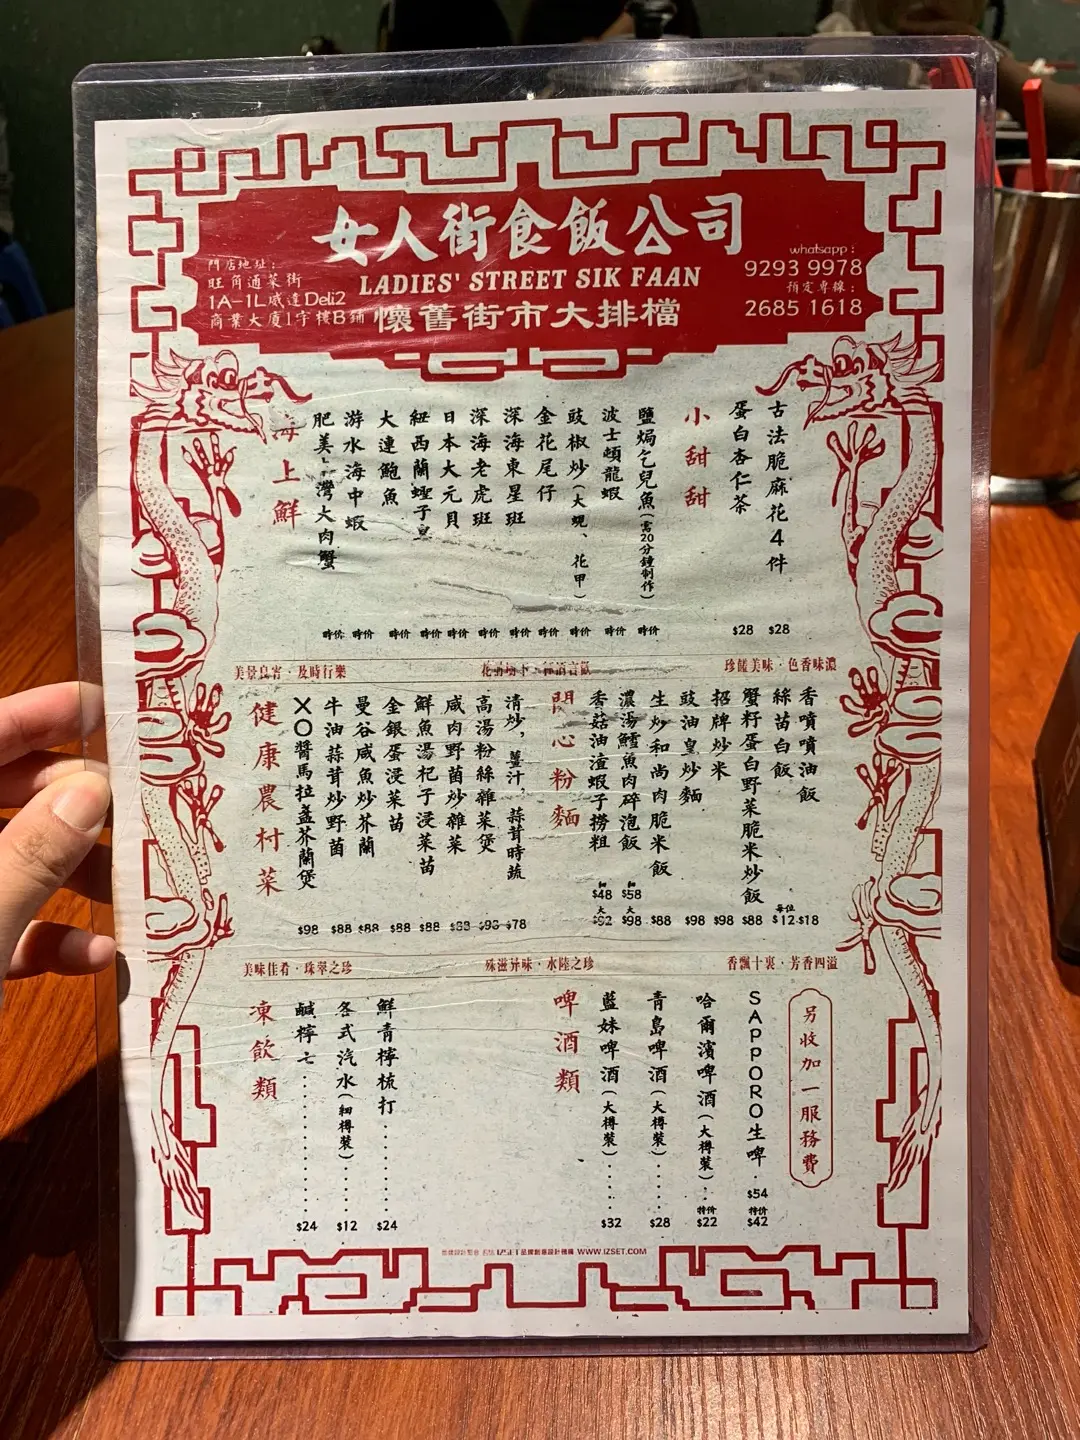 女人街食飯公司
LADIES' STREET SIK FAAN
懷舊街市大排檔
門店地址：
旺角通菜街
1A-1L威達Deli2
商業大廈1字樓B鋪
whatsapp :
9293 9978
預定專線：
2685 1618
海上鮮
肥美 灣大肉蟹 時价
游水海中蝦 時价
大連鮑魚 時价
紐西蘭蟶子皇 時价
日本大元貝 時价
深海老虎斑 時价
深海東星班 時价
金花尾仔 時价
豉椒炒(大蜆、花甲) 時价
波士頓龍蝦 時价
鹽焗乞兒魚(需20分鐘制作) 時价
小甜甜
蛋白杏仁茶 $28
古法脆麻花4件 $28
美景良宵·及時行樂
珍饈美味·色香味濃
健康農村菜
XO醬馬拉盞芥蘭煲 $98
牛油蒜茸炒野菌 $88
曼谷咸魚炒芥蘭 $88
金銀蛋浸菜苗 $88
鮮魚湯杞子浸菜苗 $88
咸肉野菌炒雜菜 $88
高湯粉絲雜菜煲 $98
清炒，薑汁，蒜茸時蔬 $78
開心粉麵
香菇油渣蝦子撈粗 細$48 大$92
濃湯鱈魚肉碎泡飯 細$58 大$98
生炒和尚肉脆米飯 $88
豉油皇炒麵 $98
招牌炒米 $98
蟹籽蛋白野菜脆米炒飯 $88
絲苗白飯 每位$12
香噴噴油飯 $18
美味佳肴·珠翠之珍
殊滋异味·水陸之珍
香飄十裏·芳香四溢
凍飲類
鹹檸七.......... $24
各式汽水(細樽裝)..... $12
鮮青檸梳打....... $24
啤酒類
藍妹啤酒(大樽裝)..... $32
青島啤酒(大樽裝)..... $28
哈爾濱啤酒(大樽裝).. 特价 $22
SAPPORO生啤.$54 特价 $42
另收加一服務費
WWW.IZSET.COM